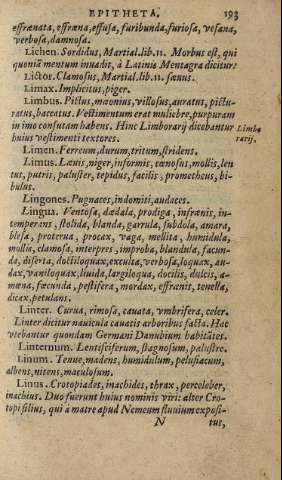 EPITHETA. 193
effrænata, effræna, effusa, furibunda, furiosa, vesana,
verbosa, damnosa.
Lichen. Sordidus, Martial. lib. 11. Morbus est, qui
quoniā mentum inuadit, à Latinis Mentagra dicitur:
Lictor. Clamosus, Martial. lib. 11. sæuus.
Limax. Implicitus, piger.
Limbus. Pictus, mæonius, villosus, auratus, pictu-
ratus, baccatus. Vestimentum erat muliebre, purpuram
in imo consutam habens. Hinc Limborarij dicebantur
Limbo
huius vestimenti textores.
rarij.
Limen. Ferreum, durum, tritum, stridens.
Limus. Læuis, niger, informis, cœnosus, mollis, len
tus, putris, paluster, tepidus, facilis, prometheus, bi-
bulus.
Lingones. Pugnaces, indomiti, audaces.
Lingua. Ventosa, dædala, prodiga, infrænis, in-
temperans, stolida, blanda, garrula, subdola, amara,
blesa, proterua, procax, vaga, mellita, humidula,
mollis, clamosa, interpres, improba, blandula, facun-
da, diserta, doctiloquax, exculta, verbosa, loquax, an-
dax, vaniloquax, liuida, largiloqua, docilis, dulcis, a-
mœna, fœcunda, pestifera, mordax, effrænis, tenella,
dicax, petulans.
Linter. Curua, rimosa, cauata, vmbrifera, celer.
Linter dicitur nauicula cauatis arboribus facta. Hac
vtebantur quondam Germani Danubium habitātes.
Linternum. Lentisciferum, stagnosum, palustre.
Linum. Tenue, madens, humidulum, pelusiacum,
albens, nitens, maculosum.
Linus. Crotopiades, inachides, thrax, perceleber,
inachius. Duo fuerunt huius nominis viri: alter Cro-
topi filius, qui à matre apud Nemeum fluuium exposi-
N tus,